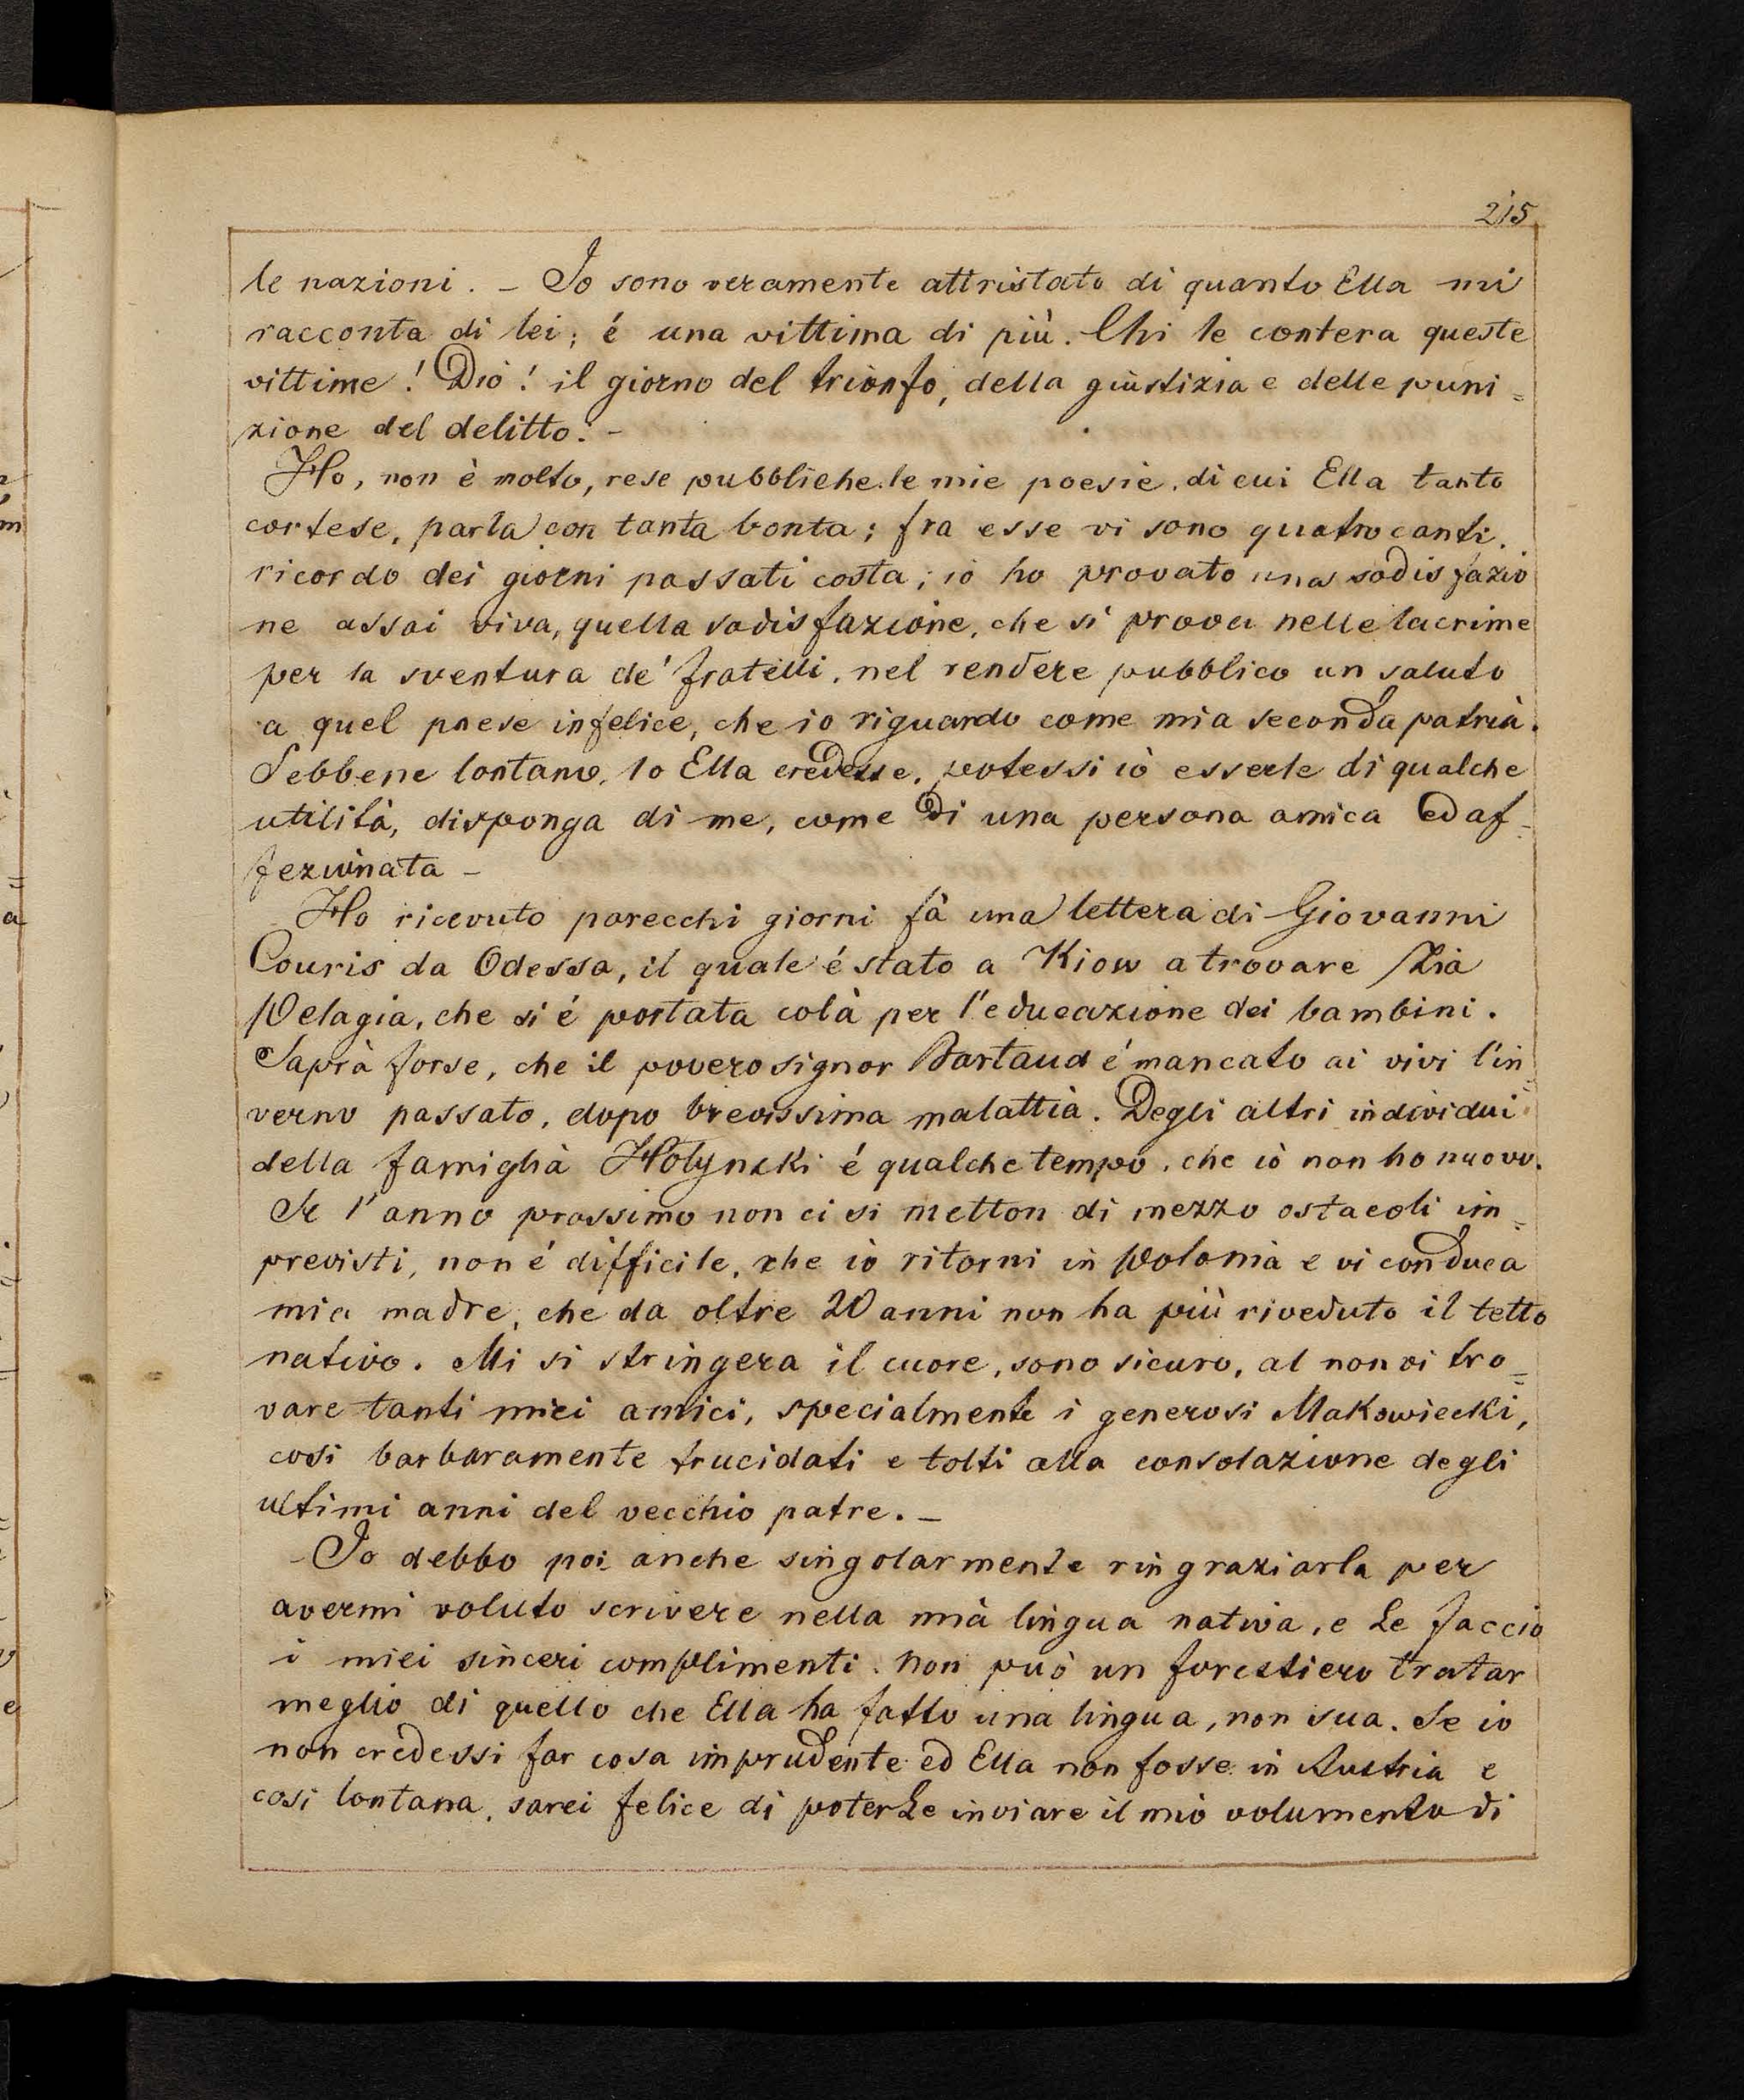 215
le nazioni. – Io sono veramente attristato di quanto Ella mi
racconta di lei; é una vittima di più. Chi le contera queste
vittime! Dio! il giorno del trionfo, della giustizia e delle puni=
zione del delitto. –
Ho, non è molto, rese pubbliche le mie poesie, di cui Ella tanto
cortese, parla con tanta bonta; fra esse vi sono quatro canti.
ricordo dei giorni passati costa; io ho provato una sodisfazio
ne assai viva, quella sodisfazione, che si prova nelle lacrime
per la sventura de' fratelli, nel rendere pubblico un saluto
a quel paese infelice, che io riguardo come mia seconda patria.
Sebbene lontano, lo Ella credesse, potessi io esserle di qualche
utilità, disponga di me, come di una persona amica ed af=
fezionata –
Ho ricevuto parecchi giorni fà una lettera di Giovanni
Couris da Odessa, il quale é stato a Kiow a trovare Zia
Pelagia, che si é portata colà per l'educazione dei bambini.
Saprà forse, che il povero signor Bartaud é mancato ai vivi l'in=
verno passato, dopo brevissima malattia. Degli altri individui
della famiglia Hołynski é qualche tempo, che io non ho nuove.
Se l'anno prossimo non ci si metton di mezzo ostacoli im=
previsti, non é difficile, che io ritorni in Polonia e vi conduca
mia madre, che da oltre 20 anni non ha più riveduto il tetto
nativo. Mi si stringera il cuore, sono sicuro, al non vi tro=
vare tanti miei amici, specialmente i generosi Makowiecki,
cosi barbaramente trucidati e tolti alla consolazione degli
ultimi anni del vecchio patre. –
Io debbo poi anche singolarmente ringraziarla per
avermi voluto scrivere nella mia lingua nativa, e Le faccio
i miei sinceri complimenti. Non può un forestiero tratar
meglio di quello che Ella ha fatto una lingua, non sua. Se io
non credessi far cosa imprudente ed Ella non fosse in Austria e
cosi lontana, sarei felice di poterLe inviare il mio volumento di